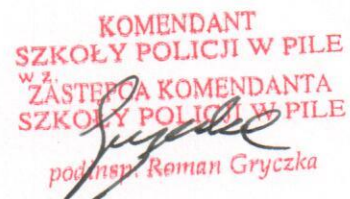 KOMENDANT
SZKOŁY POLICJI W PILE
w z.
ZASTĘPCA KOMENDANTA
SZKOŁY POLICJI W PILE
podinsp. Roman Gryczka